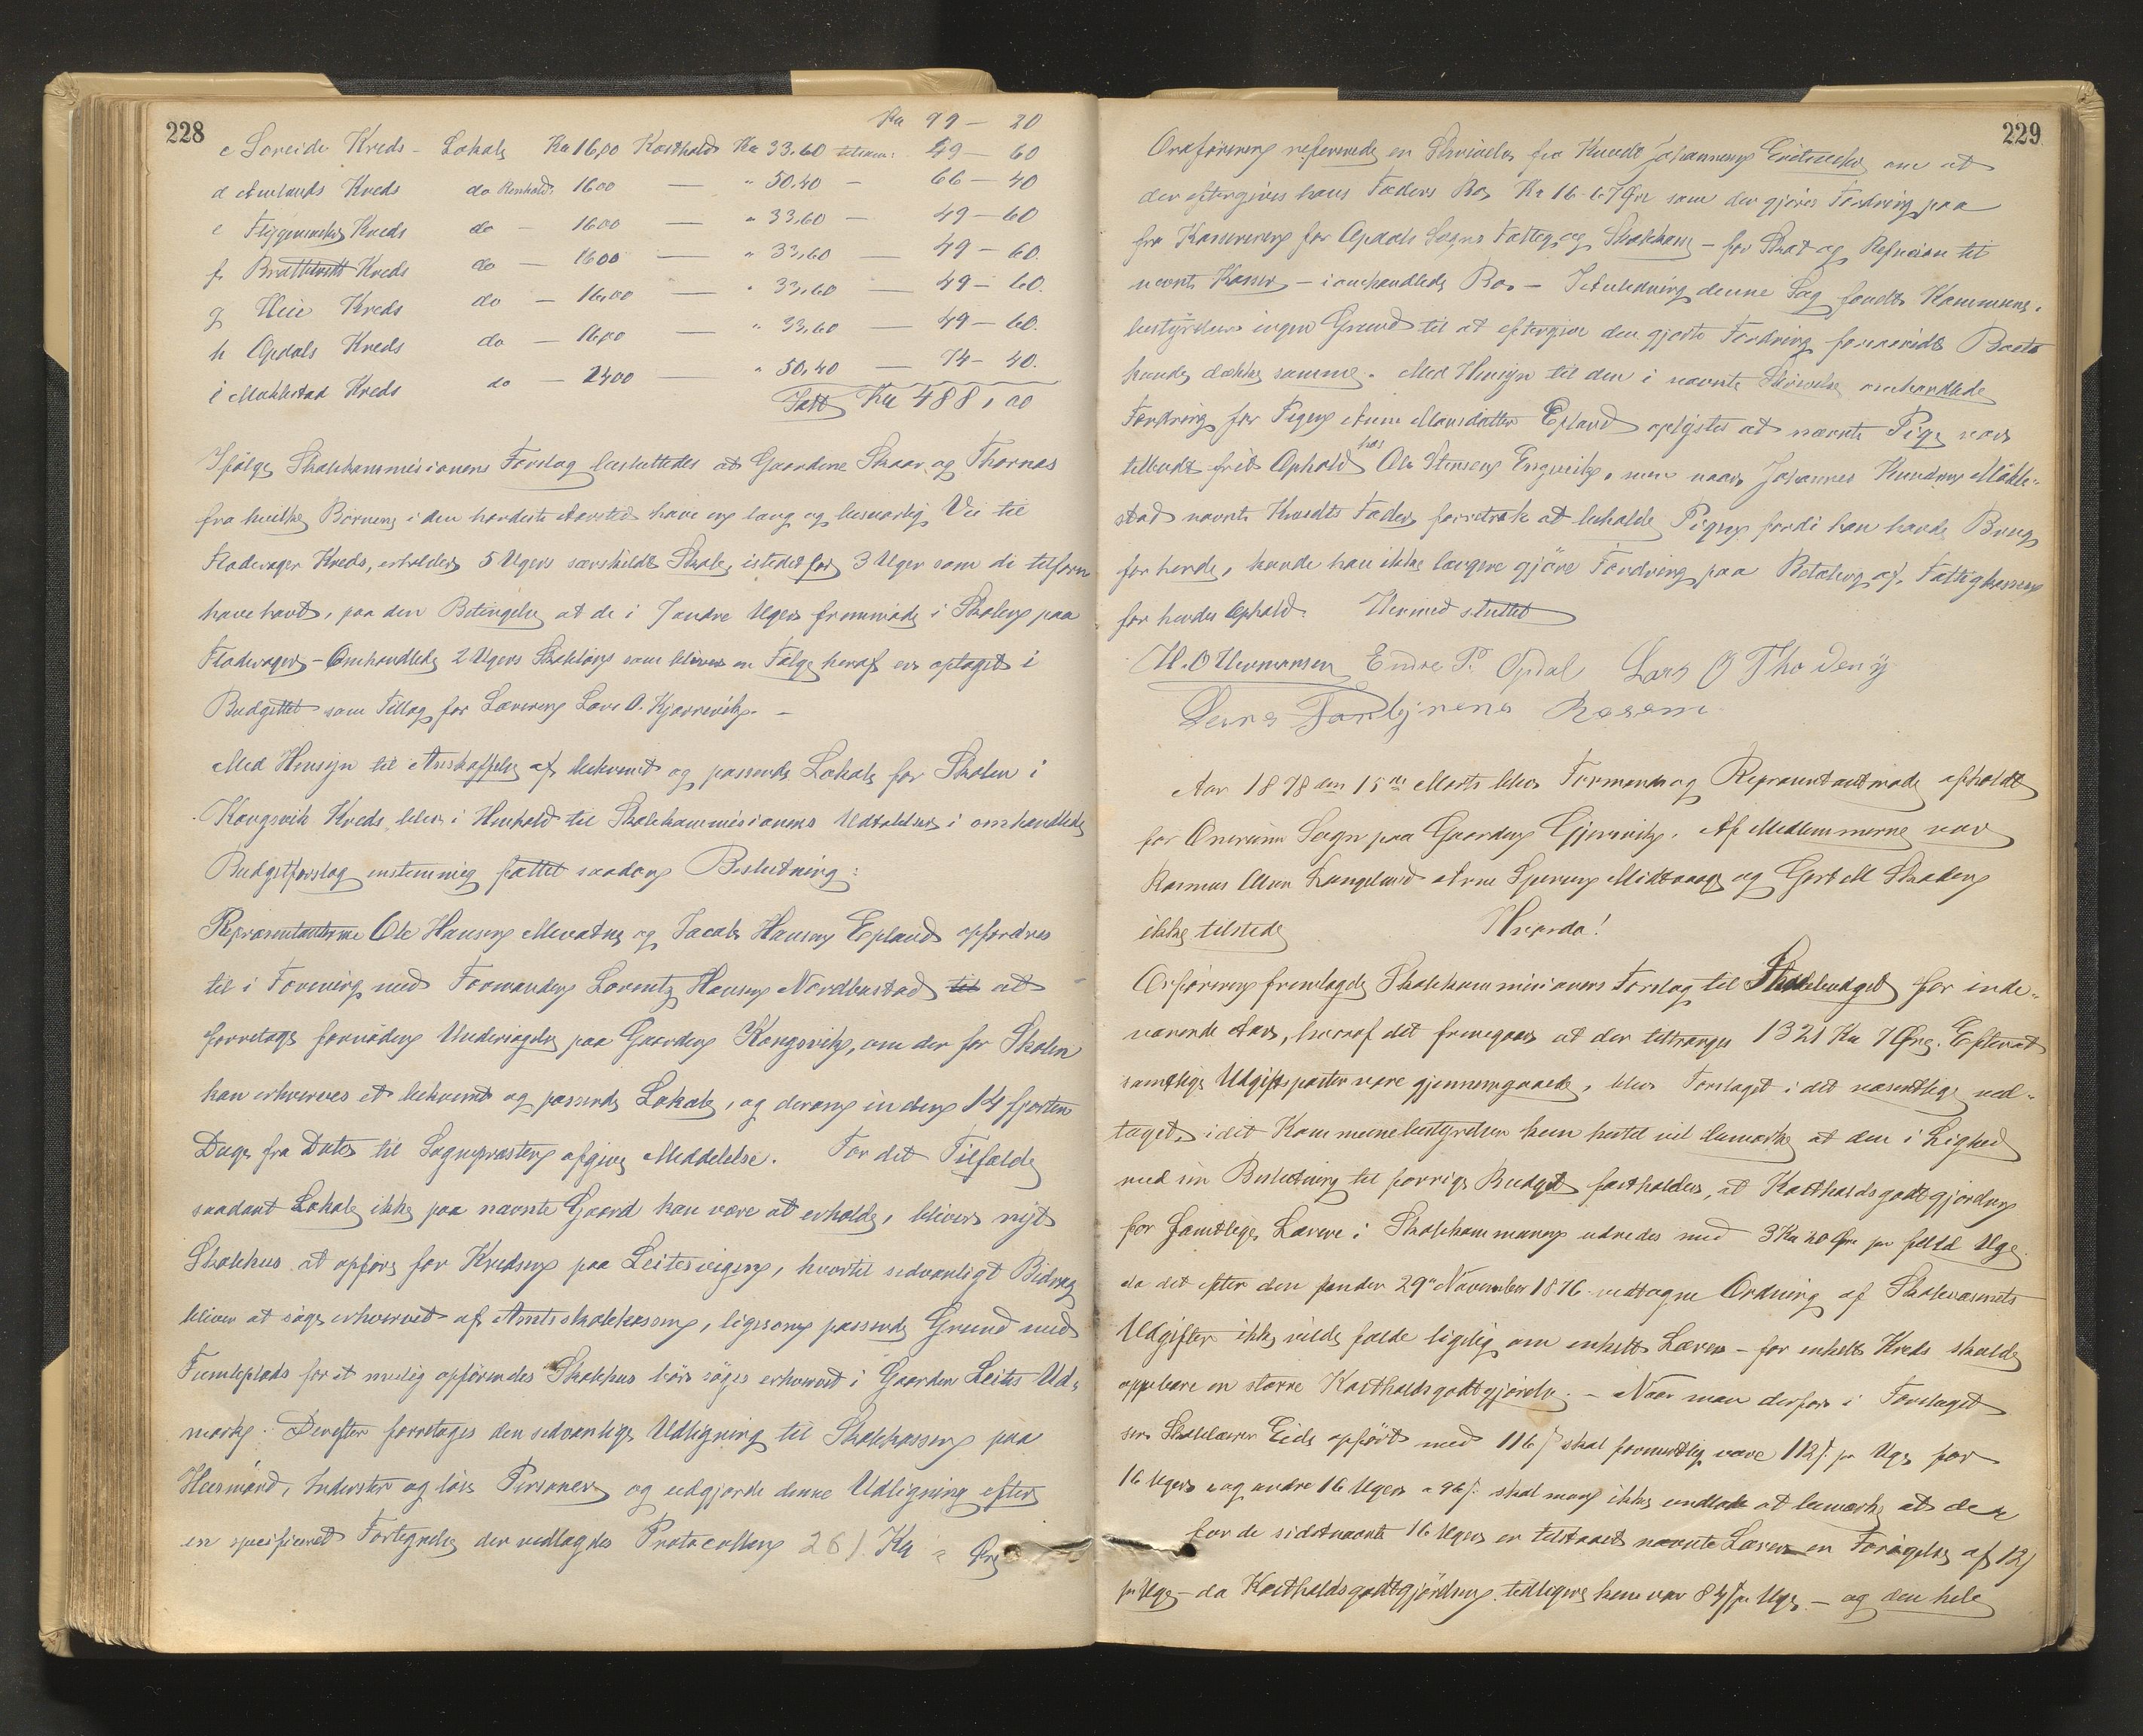 228
Kr 99 — 20
c Søreide Kreds - Lokale Kr 16,00 Kosthold Kr 33.60 tilsam: 49 — 60
d Aurlands Kreds do Renhold 1600 — " 50.40 — 66 — 40
e Kreds do — 1600 — " 33.60 — 49 — 60
f. Brattetveit Kreds do — 1600 — " 33.60 — 49 — 60.
g Kreds do — 16,00 — " 33.60 — 49 — 60.
h Opdals Kreds do — 16,00 — " 33.60 — 49 — 60.
i Møkkestad Kreds do — 2400 — " 50.40 — 74 — 40.
Kr 488,00
Ifølge Skolekommisionens Forslag besluttedes at Gaardene Skaar og Thornæs
fra hvilke Børnene i den haardeste Aarstid have en lang og besværlig Vei til
Fladevager Kreds, erholder 5 Ugers særskildt Skole, istedetfor 3 Uger som de tilforn
have havt, paa den Betingelse at de i 7 andre Uger fremmøde i Skolen paa
Fladevager - Omhandlede 2 Ugers Skoletillæg som bliver en Følge heraf er optaget i
Budgettet som Tillæg for Læreren Lars O. Kjærrevik. -
Med Hensyn til Anskaffelse af bekvemt og passende Lokale for Skolen i
Kongsvik Kreds blev i Henhold til Skolekommisionens Udtalelser i omhandlede
Budgetforslag enstemmig fattet saadan Beslutning:
Repræsentanterne Ole Hansen Mevatne og Jacob Hansen Epland opfordres
til i Forening med Formanden Lorentz Hansen Nordbustad til at
foretage fornøden Undersøgelse paa Gaarden Kongsvik, om der for Skolen
kan erhverves et bekvemt og passende Lokale, og derom inden 14 fjorten
Dage fra Dato til Sognepræsten afgive Meddelelse. For det Tilfælde
saadant Lokale ikke paa nævnte Gaard kan være at erholde, bliver nyt
Skolehus at opføre for Kredsen paa Leitesvigen, hvortil sedvanligt Bidrag
bliver at søge erhvervet af Amtsskolekassen, ligesom passende Grund med
Tumleplads for et mulig opførendes Skolehus bør søges erhvervet i Gaarden Leites Ud-
mark. Derefter foretoges den sedvanlige Udligning til Skolekassen paa
Huusmænd, Inderster og løse Personer og udgjorde denne Udligning efter
en specificeret Fortegnelse der vedlagdes Protocollen 261 Kr " Øre
229
Ordføreren refererede en Skrivelse fra Knudt Johannesen om at
der eftergives hans Faders Bo, Kr 16 67 Øre som der gjøres Fordring paa
fra Kassereren for Opdals Sogns Fattig og Skolekasse - for Skat og Refusion til
nævnte Kasser - i omhandlede Bo. - I Anledning denne Sag fandt Kommune-
bestyrelsen ingen Grund til at eftergive den gjorte Fordring forsaavidt Boets
kunde dække samme. Med Hensyn til den i nævnte Skrivelse omhandlede
Fordring for Pigen Anne Monsdatter Epland oplystes at nævnte Pige var
tilbudt frit Ophold hos Ole Stensen Engevik, men naar Johannes Knudsen Møkle-
stad nævnte Knudts Fader foretrak at beholde Pigen fordi han havde Brug
for hende, kunde han ikke længere gjøre Fordring paa Betaling af Fattigkassen
for hendes Ophold. Hermed sluttet
H. O Hermansen Endre P. Opdal Lars O Thodeny
Lars Torbjnens Røsem
Aar 1878 den 15de Marts blev Formands og Repræsentantmøde afholdt
for Onarheim Sogn paa Gaarden Gjersvik. Af Medlemmerne var
Rasmus Olsen Langeland Arne Spersen Midtvaage og Gert M Skaden
ikke tilstede Hvorda!
Ordføreren fremlagde Skolekommisionens Forslag til Skolebudget for inde-
værende Aar, hvoraf det fremgaar at der tiltrænges 1321 Kr 7 Øre. Efterat
samtlige Udgiftsposter vare gjennemgaaede, blev Forslaget i det væsentlige ved-
taget, idet Kommunebestyrelsen kun hertil vil bemærke at den i Lighed
med sin Beslutning til forrige Budget fastholder, at Kostholdsgodtgjørelsen
for samtlige Lærere i Skolekommunen udredes med 3 Kr 20 Øre pr fuld Uge.
da det efter den under 29de November 1876 vedtagne Ordning af Skolevæsenets
Udgifter ikke vilde falde ligelig om enkelte Lærer - for enkelte Kreds skulde
oppebære en større Kostholdsgodtgjørelse. - Naar man derfor i Forslaget
ser Skolelærer Eide opført med 116 / skal formentlig være 112 / pr Uge for
16 Uger, og andre 16 Uger a 96 / skal man ikke undlade at bemærke at der
for de sidstnævnte 16 Uger er tilstaaet nævnte Lærer en Forøgelse af 12 /
pr Uge - da Kostholdsgodtgjørelsen tidligere kun var 84 / pr Uge - og den hele